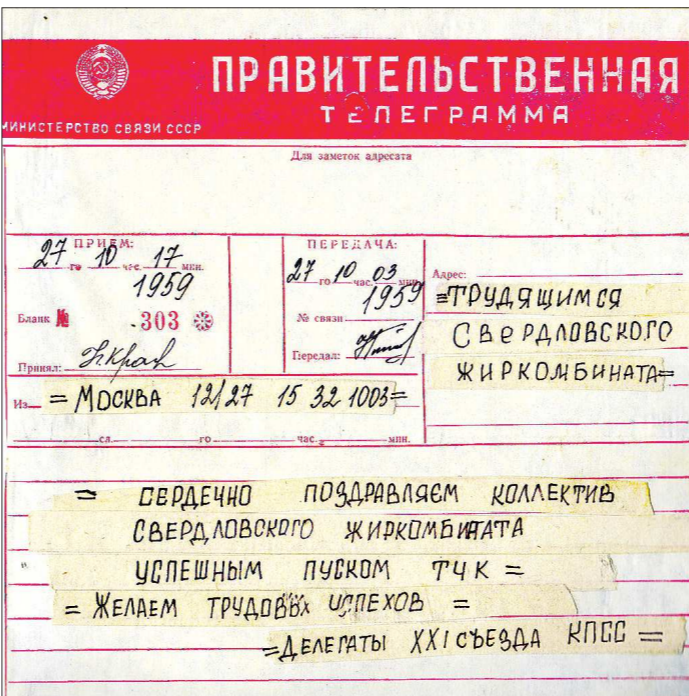 ПРАВИТЕЛЬСТВЕННАЯ
ТЕЛЕГРАММА
МИНИСТЕРСТВО СВЯЗИ СССР
Для заметок адресата
ПРИЕМ:
27 го 10 час. 17 мин.
1959
Бланк № 303
Принял:
ПЕРЕДАЧА:
27 го 10 час. 03 мин.
1959
№ связи
Передал:
Адрес:
=ТРУДЯЩИМСЯ
СВЕРДЛОВСКОГО
ЖИРКОМБИНАТА=
Из = МОСКВА 12/27 15 32 1003=
сл. го час. мин.
= СЕРДЕЧНО ПОЗДРАВЛЯЕМ КОЛЛЕКТИВ
СВЕРДЛОВСКОГО ЖИРКОМБИНАТА
УСПЕШНЫМ ПУСКОМ ТЧК =
= ЖЕЛАЕМ ТРУДОВЫХ УСПЕХОВ =
=ДЕЛЕГАТЫ XXI СЪЕЗДА КПСС =